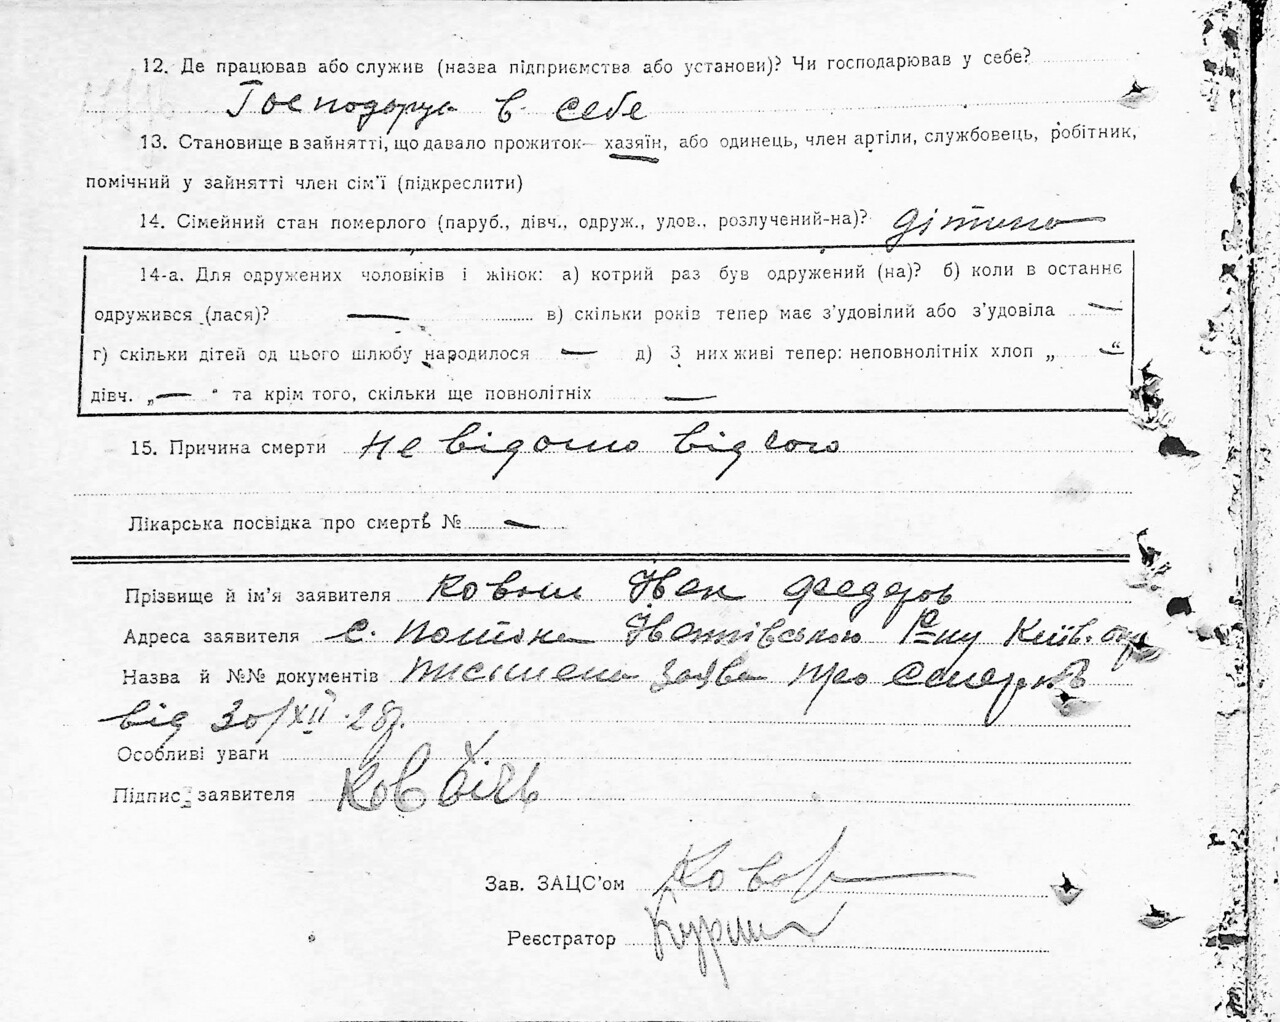 12. Де працював або служив (назва підприємства або установи)? Чи господарював у себе?
Господорує в себе
13. Становище в зайнятті, що давало прожиток— хазяїн, або одинець, член артіли, службовець, робітник,
помічний у зайнятті член сім'ї (підкреслити)
14. Сімейний стан померлого (паруб., дівч., одруж., удов., розлучений-на)?
14-а. Для одружених чоловіків і жінок: а) котрий раз був одружений (на)? б) коли в останнє
одружився (лася)? — в) скільки років тепер має з'удовілий або з'удовіла —
г) скільки дітей од цього шлюбу народилося — д) З них живі тепер: неповнолітніх хлоп „—“
дівч. „—“ та крім того, скільки ще повнолітніх —
15. Причина смерти не відомо від чого
Лікарська посвідка про смерть № —
Прізвище й ім'я заявителя Іван Федоров
Адреса заявителя с. Київ. окр
Назва й №№ документів писмена заява про смерть
від 30/XII 28р.
Особливі уваги
Підпис заявителя
Зав. ЗАЦС'ом
Реєстратор